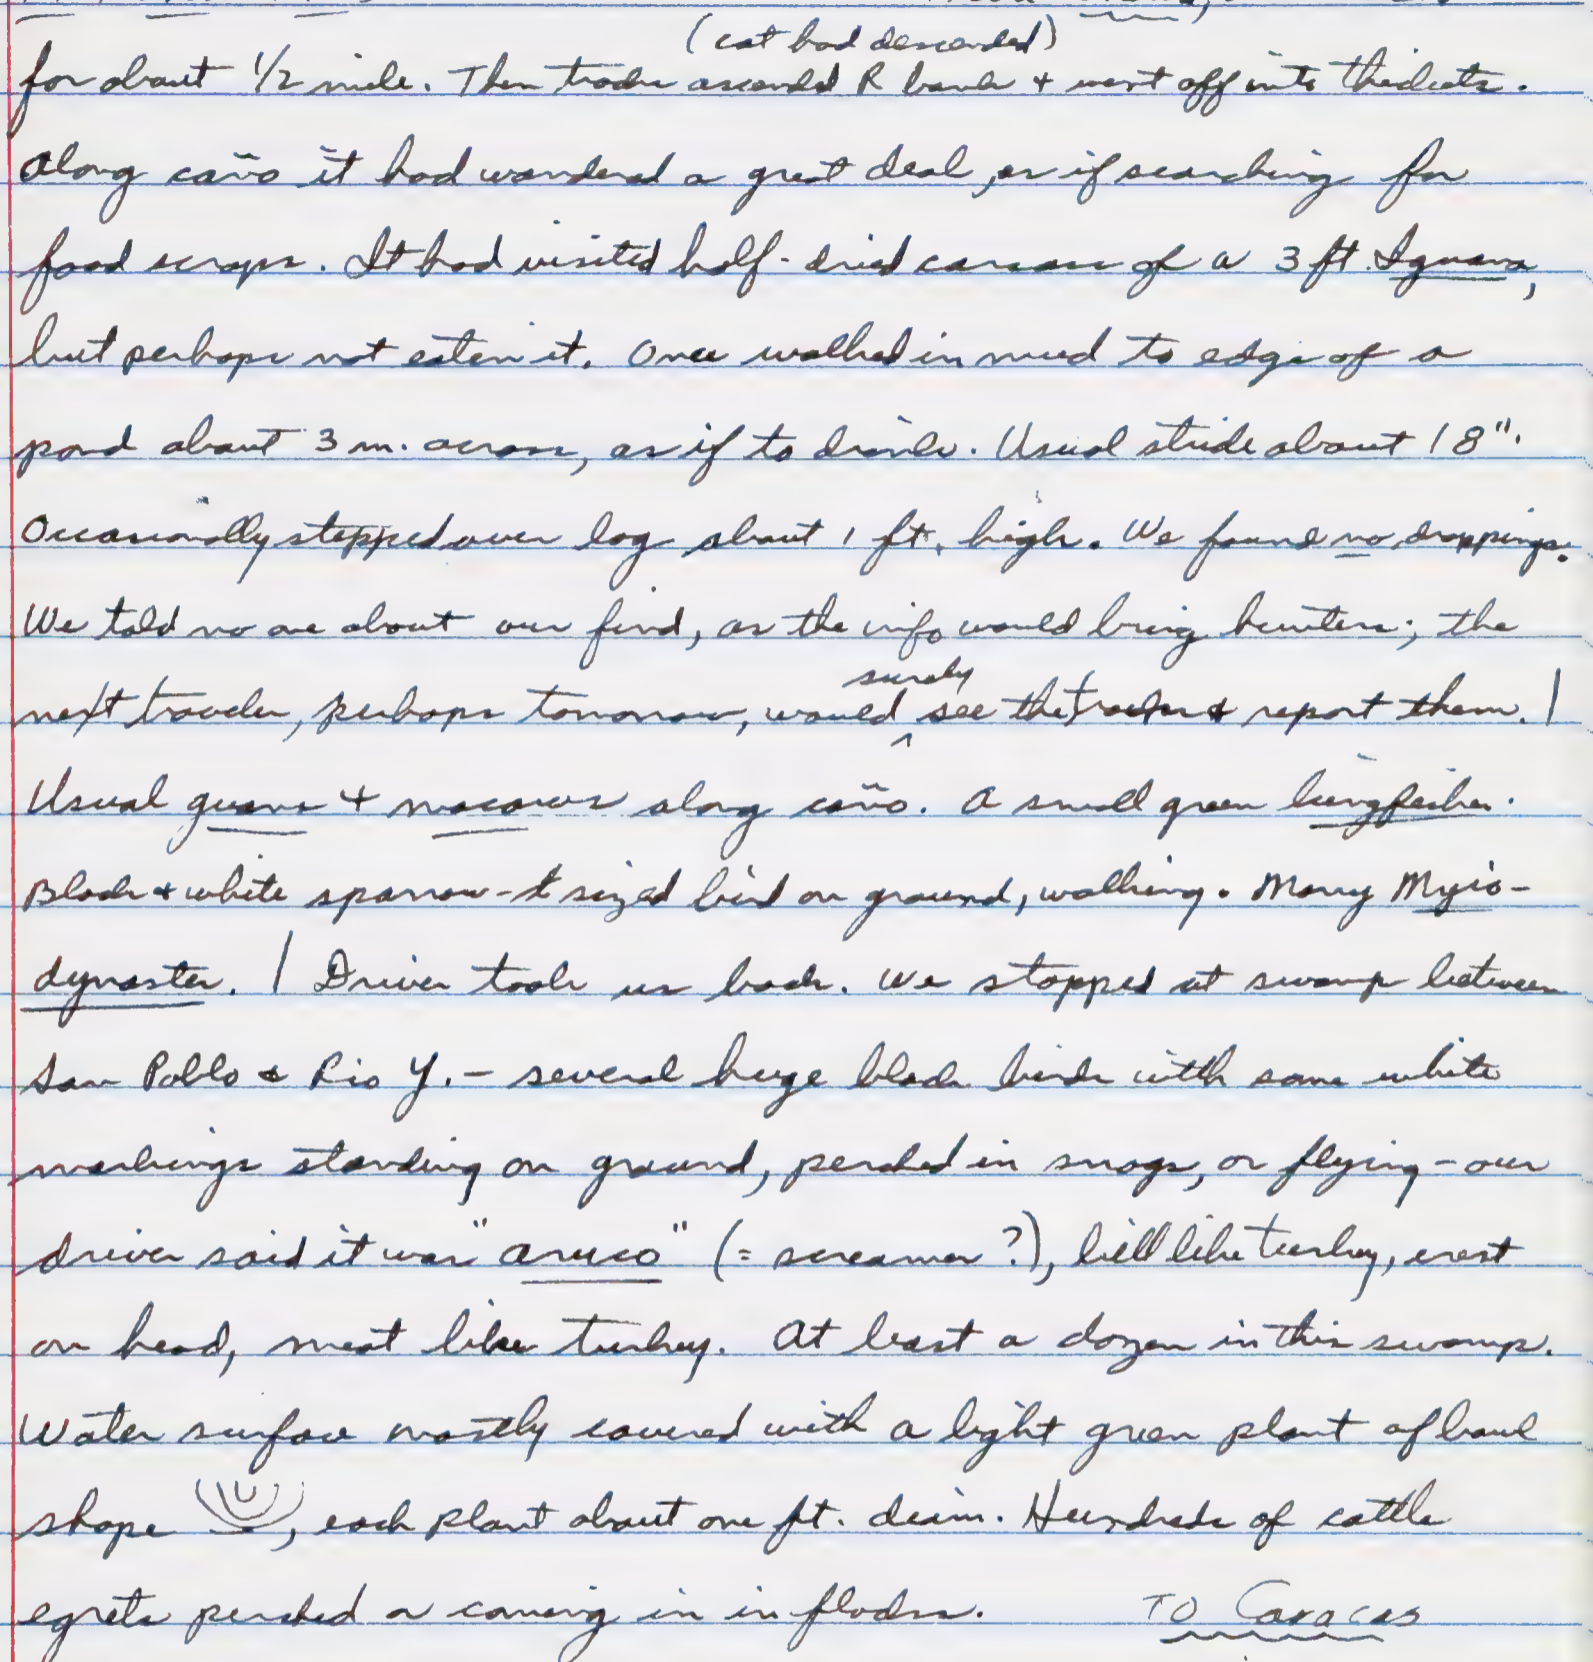 (cat had descended)
for about 1/2 mile. Then tracks ascended R bank + went off into thickets.
Along caño it had wandered a great deal, as if searching for
food scraps. It had visited half-dried carcass of a 3 ft. Iguana,
but perhaps not eaten it. Once walked in mud to edge of a
pond about 3 m. across, as if to drink. Usual stride about 18".
Occasionally stepped over log about 1 ft. high. We found no droppings.
We told no one about our find, as the info would bring hunters; the
surely
next traveler, perhaps tomorrow, would ^ see the tracks & report them. |
Usual guans + macaws along caño. A small green kingfisher.
Black + white sparrow-sized bird on ground, walking. Many Myio-
dynastes. | Driver took us back. We stopped at swamp between
San Pablo & Rio Y. - several huge black birds with some white
markings standing on ground, perched in snags, or flying - our
driver said it was "aruco" (= screamer?), bill like turkey, crest
on head, meat like turkey. At least a dozen in this swamp.
Water surface mostly covered with a light green plant of bowl
shape, each plant about one ft. diam. Hundreds of cattle
egrets perched or coming in in flocks. TO Caracas